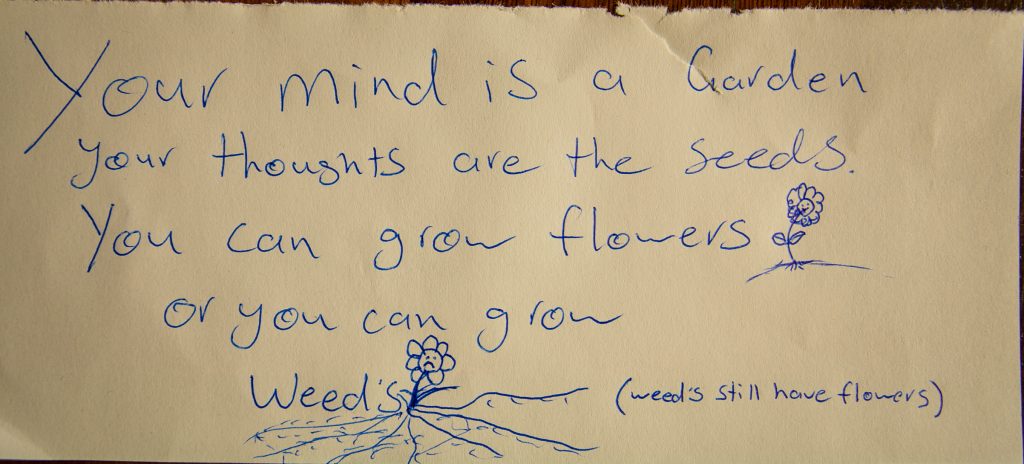 Your mind is a Garden
your thoughts are the seeds.
You can grow flowers
or you can grow
Weed's (weed's still have flowers)